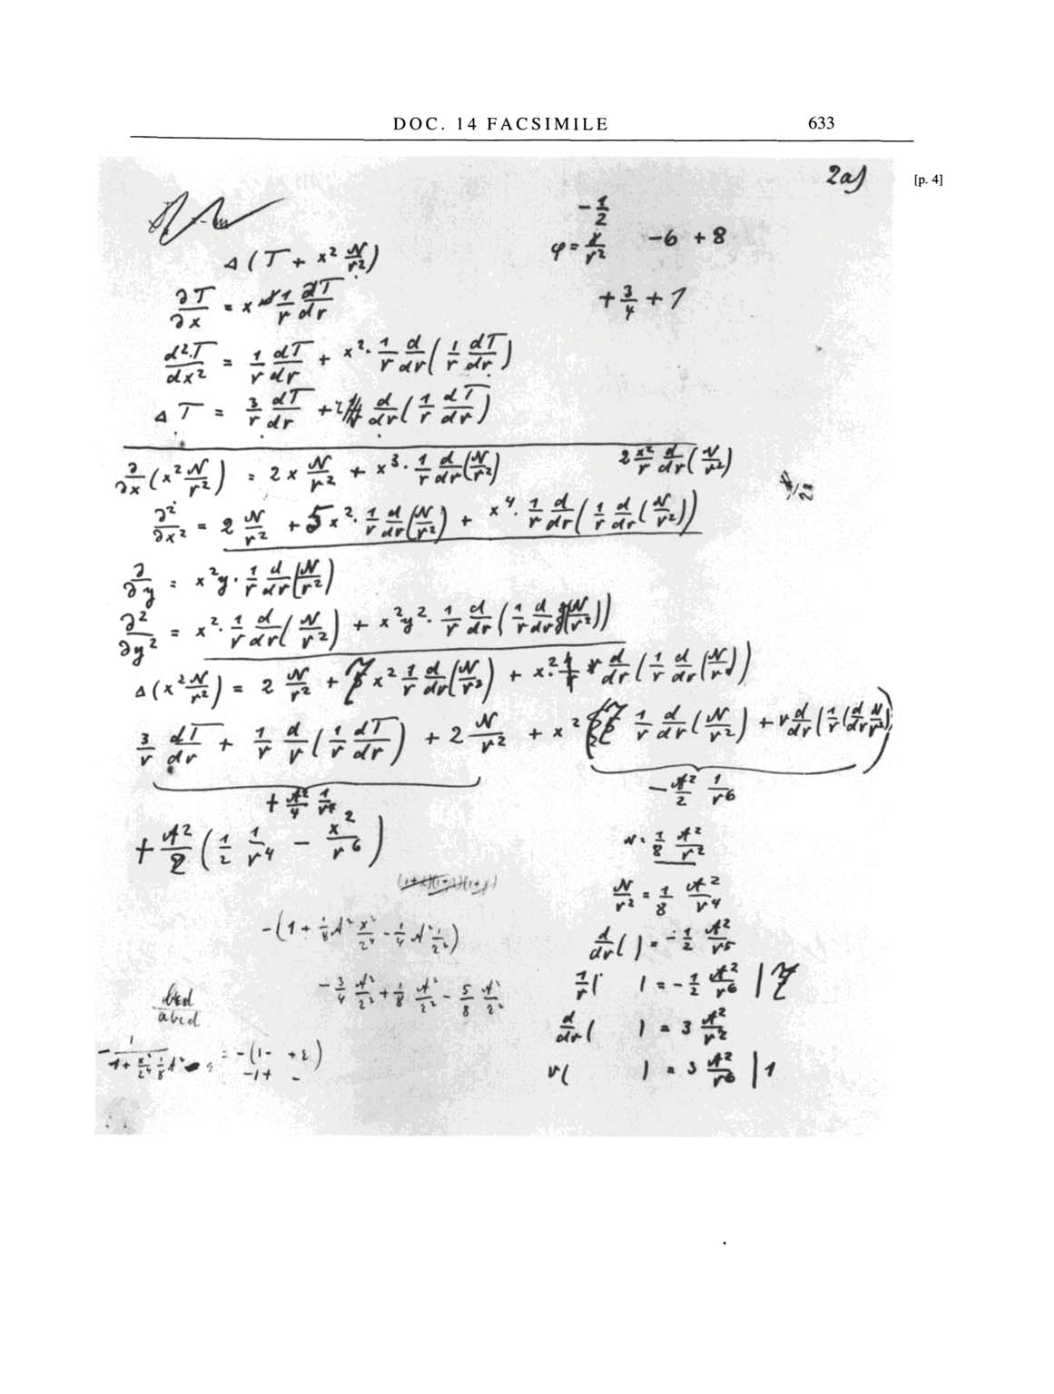 DOC. 14 FACSIMILE 633
[p. 4]
2a)
- 1/2
φ = γ/r² -6 +8
+ 3/4 + 1
Δ(T + x² N/r²)
∂T/∂x = x 1/r dT/dr
d²T/dx² = 1/r dT/dr + x² · 1/r d/dr(1/r dT/dr)
ΔT = 3/r dT/dr + r d/dr(1/r dT/dr)
∂/∂x(x² N/r²) = 2x N/r² + x³ · 1/r d/dr(N/r²) 2 x²/r d/dr(N/r²)
∂²/∂x² = 2 N/r² + 5x² · 1/r d/dr(N/r²) + x⁴ · 1/r d/dr(1/r d/dr(N/r²))
∂/∂y = x²y · 1/r d/dr(N/r²)
∂²/∂y² = x² · 1/r d/dr(N/r²) + x²y² · 1/r d/dr(1/r d/dr(N/r²))
Δ(x² N/r²) = 2 N/r² + 7 x² 1/r d/dr(N/r²) + x² · r d/dr(1/r d/dr(N/r²))
3/r dT/dr + 1/r d/r(1/r dT/dr) + 2 N/r² + x²(7 1/r d/dr(N/r²) + r d/dr(1/r(d/dr N/r²)))
+ A²/4 1/r⁴ - A²/2 1/r⁶
+ A²/2 (1/2 1/r⁴ - x²/r⁶)
N = 1/8 A²/r²
N/r² = 1/8 A²/r⁴
d/dr( ) = - 1/2 A²/r⁵
1/r( ) = - 1/2 A²/r⁶ | 7
d/dr( ) = 3 A²/r²
r( ) = 3 A²/r⁶ | 1
-(1 + 1/8 A² x²/2⁴ - 1/4 A² 1/2²)
- 3/4 A²/2² + 1/8 A²/2² - 5/8 A²/2²
bcd/abcd
= -(1- +ε)
-1+ -